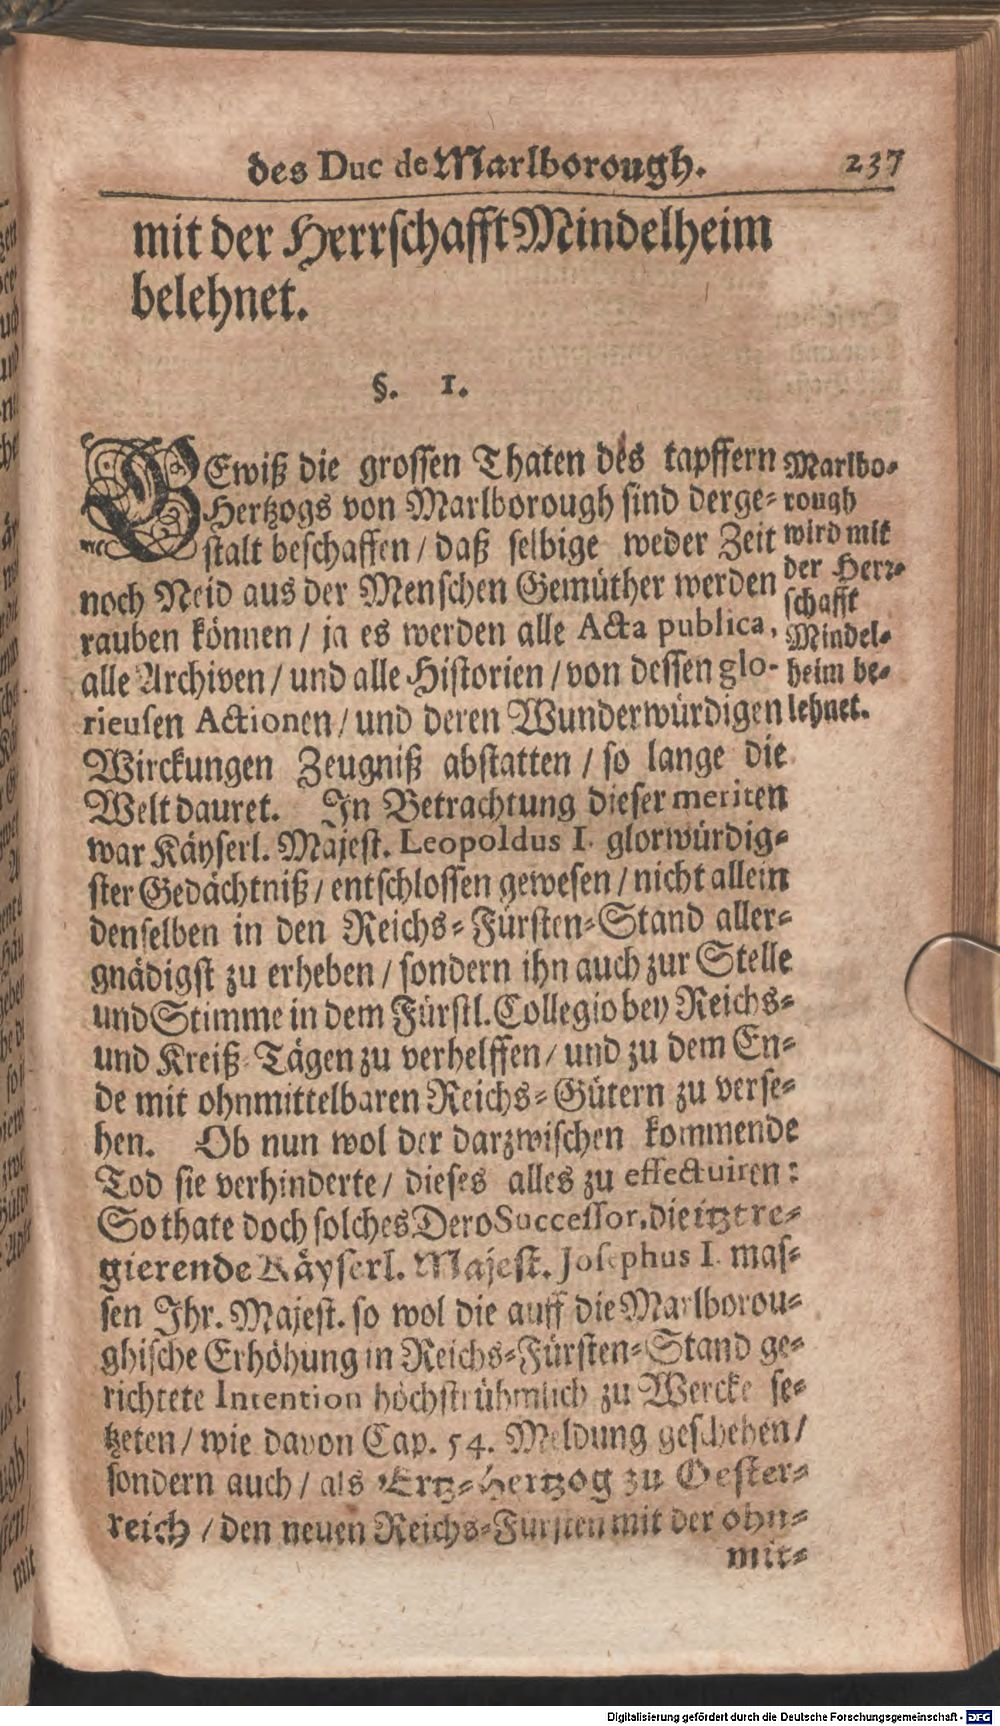 des Duc de Marlborough. 237
mit der Herrschafft Mindelheim
belehnet.
§. 1.
GEwiß die grossen Thaten des tapffern
Hertzogs von Marlborough sind derge-
stalt beschaffen / daß selbige weder Zeit
noch Neid aus der Menschen Gemüther werden
rauben können / ja es werden alle Acta publica,
alle Archiven / und alle Historien / von dessen glo-
rieusen Actionen / und deren Wunderwürdigen
Wirckungen Zeugniß abstatten / so lange die
Welt dauret. In Betrachtung dieser meriten
war Käyserl. Majest. Leopoldus I. glorwürdig-
ster Gedächtniß / entschlossen gewesen / nicht allein
denselben in den Reichs-Fürsten-Stand aller-
gnädigst zu erheben / sondern ihn auch zur Stelle
und Stimme in dem Fürstl. Collegio bey Reichs-
und Kreiß-Tägen zu verhelffen / und zu dem En-
de mit ohnmittelbaren Reichs-Gütern zu verse-
hen. Ob nun wol der darzwischen kommende
Tod sie verhinderte / dieses alles zu effectuiren:
So thate doch solches Dero Successor, die itzt re-
gierende Käyserl. Majest. Josephus I. mas-
sen Ihr. Majest. so wol die auff die Marlborou-
ghische Erhöhung in Reichs-Fürsten-Stand ge-
richtete Intention höchstrühmlich zu Wercke se-
tzeten / wie davon Cap. 54. Meldung geschehen /
sondern auch / als Ertz-Hertzog zu Oester-
reich / den neuen Reichs-Fürsten mit der ohn-
mit-
Marlbo-
rough
wird mit
der Herr-
schafft
Mindel-
heim be-
lehnet.
Digitalisierung gefördert durch die Deutsche Forschungsgemeinschaft - DFG